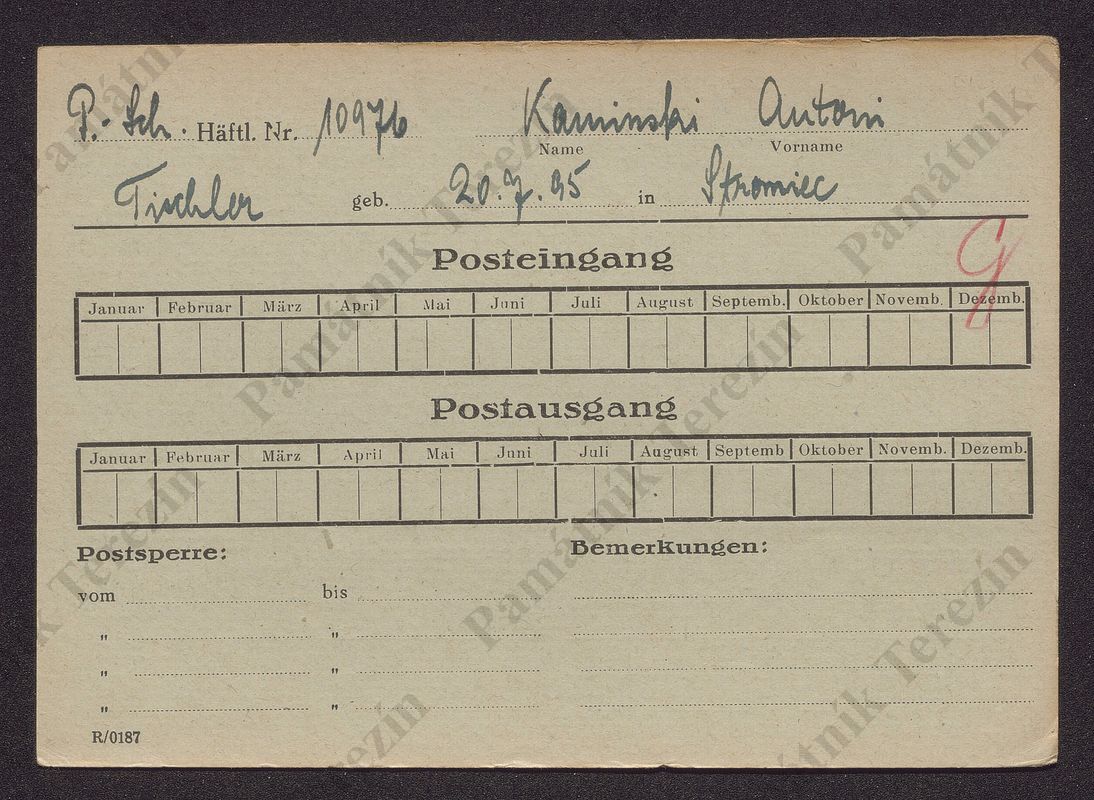 P.-Sch. Häftl. Nr. 10976 Kaminski Antoni
Name Vorname
Tischler geb. 20.7.95 in Stromiec
G
Posteingang
Januar Februar März April Mai Juni Juli August Septemb. Oktober Novemb. Dezemb.
Postausgang
Januar Februar März April Mai Juni Juli August Septemb Oktober Novemb. Dezemb.
Postsperre: Bemerkungen:
vom bis
" "
" "
" "
R/0187
Památník Terezín